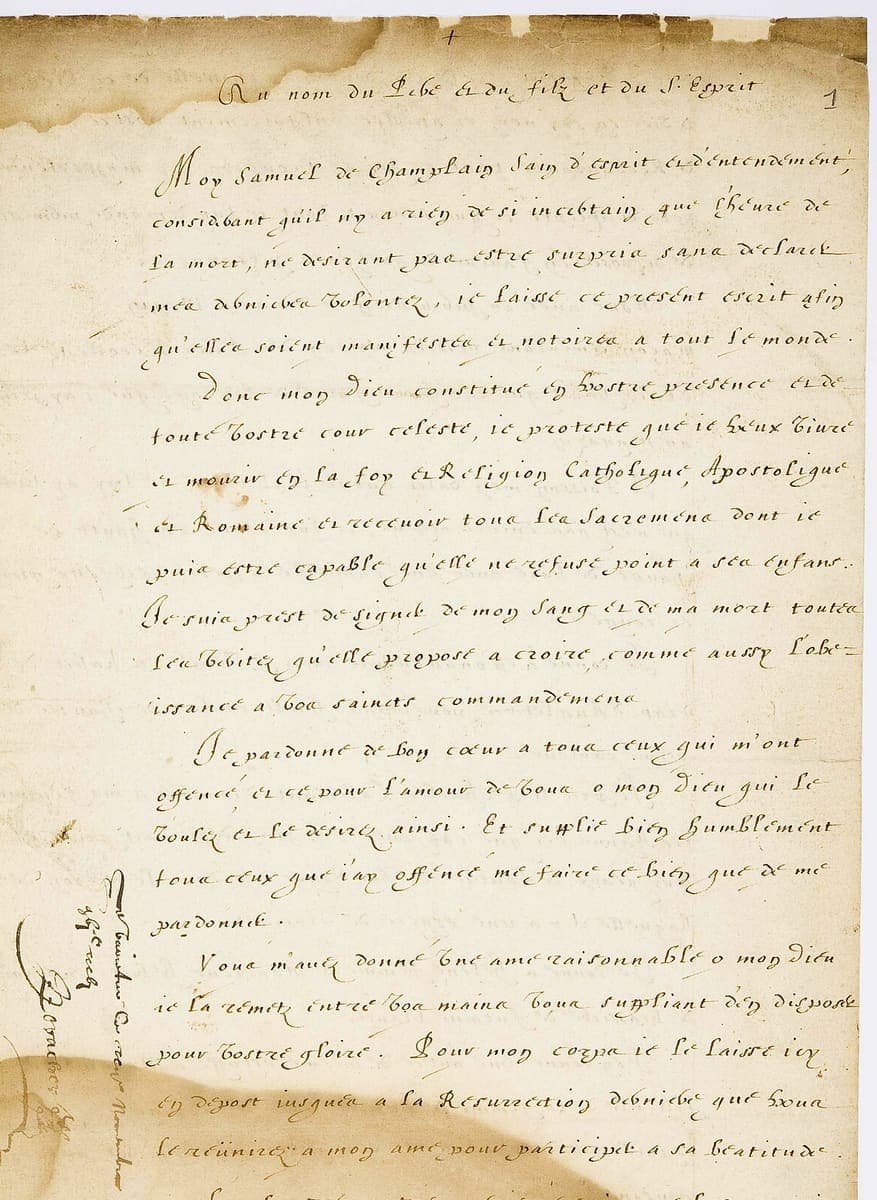 +
Au nom du Pere et du filz et du S. Esprit
1
Moy Samuel de Champlain sain d'esprit et d'entendement,
considerant qu'il ny a rien de si incertain que l'heure de
la mort, ne desirant pas estre surpris sans declarer
mes dernieres volontez, ie laisse ce present escrit afin
qu'elles soient manifestes et notoires a tout le monde.
Donc mon Dieu constitué en vostre presence et de
toute vostre cour celeste, ie proteste que ie veux vivre
et mourir en la foy et Religion Catholique, Apostolique
et Romaine et recevoir tous les Sacremens dont ie
puis estre capable qu'elle ne refuse point a ses enfans.
Je suis prest de signer de mon sang et de ma mort toutes
les veritez qu'elle propose a croire, comme aussy l'obe=
issance a vos saincts commandemens
Je pardonne de bon cœur a tous ceux qui m'ont
offencé, et ce pour l'amour de vous o mon Dieu qui le
voulez et le desirez ainsi. Et supplie bien humblement
tous ceux que i'ay offencé me faire ce bien que de me
pardonner.
Vous m'avez donné une ame raisonnable o mon Dieu
ie la remetz entre vos mains vous suppliant d'en disposer
pour vostre gloire. Pour mon corps ie le laisse icy
en depost iusques a la Resurrection derniere que vous
le reünirez a mon ame pour participer a sa beatitude.